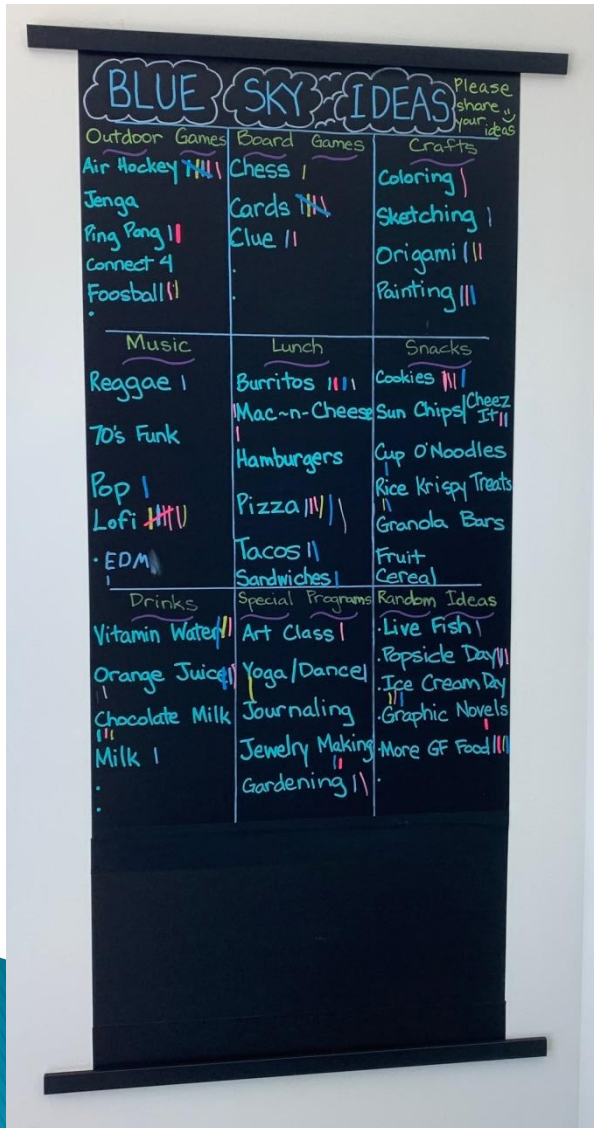 BLUE SKY IDEAS
Please
share
your
ideas
Outdoor Games
Air Hockey
Jenga
Ping Pong
Connect 4
Foosball
Board Games
Chess
Cards
Clue
Crafts
Coloring
Sketching
Origami
Painting
Music
Reggae
70's Funk
Pop
Lofi
· EDM
Lunch
Burritos
Mac~n-Cheese
Hamburgers
Pizza
Tacos
Sandwiches
Snacks
Cookies
Sun Chips/Cheez
It
Cup O'Noodles
Rice Krispy Treats
Granola Bars
Fruit
Cereal
Drinks
Vitamin Water
Orange Juice
Chocolate Milk
Milk
Special Programs
Art Class
Yoga/Dance
Journaling
Jewelry Making
Gardening
Random Ideas
·Live Fish
·Popsicle Day
·Ice Cream Day
·Graphic Novels
·More GF Food